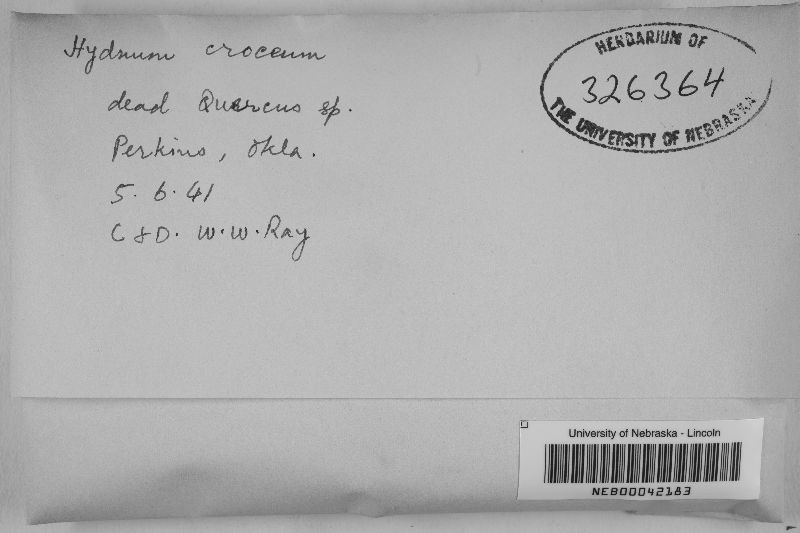 Hydnum croceum
dead Quercus sp.
Perkins, Okla.
5.6.41
C & D. W.W. Ray
HERBARIUM OF
326364
THE UNIVERSITY OF NEBRASKA
University of Nebraska - Lincoln
NEB00042183